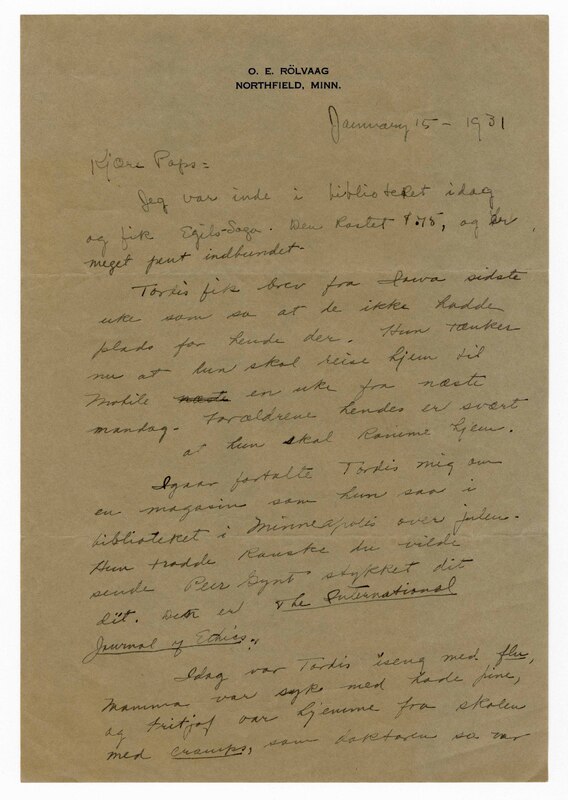 O. E. RÖLVAAG
NORTHFIELD, MINN.
January 15 - 1931
Kjære Pops =
Jeg var inde i biblioteket idag
og fik Egils-Saga. Den kostet $.75, og er
meget pent indbundet.
Tordis fik brev fra Iowa sidste
uke som sa at de ikke hadde
plads for hende der. Hun tænker
nu at hun skal reise hjem til
Mobile næste en uke fra næste
mandag. Forældrene hendes er svært
at hun skal komme hjem.
Igaar fortalte Tordis mig om
en magasin som hun saa i
biblioteket i Minneapolis over julen.
Hun trodde kanske du vilde
sende Peer Gynt stykket dit
dit. Den er The International
Journal of Ethics.
Idag var Tordis iseng med flu,
Mamma var syk med hode pine,
og Fritjof var hjemme fra skolen
med cramps, som doktoren sa var